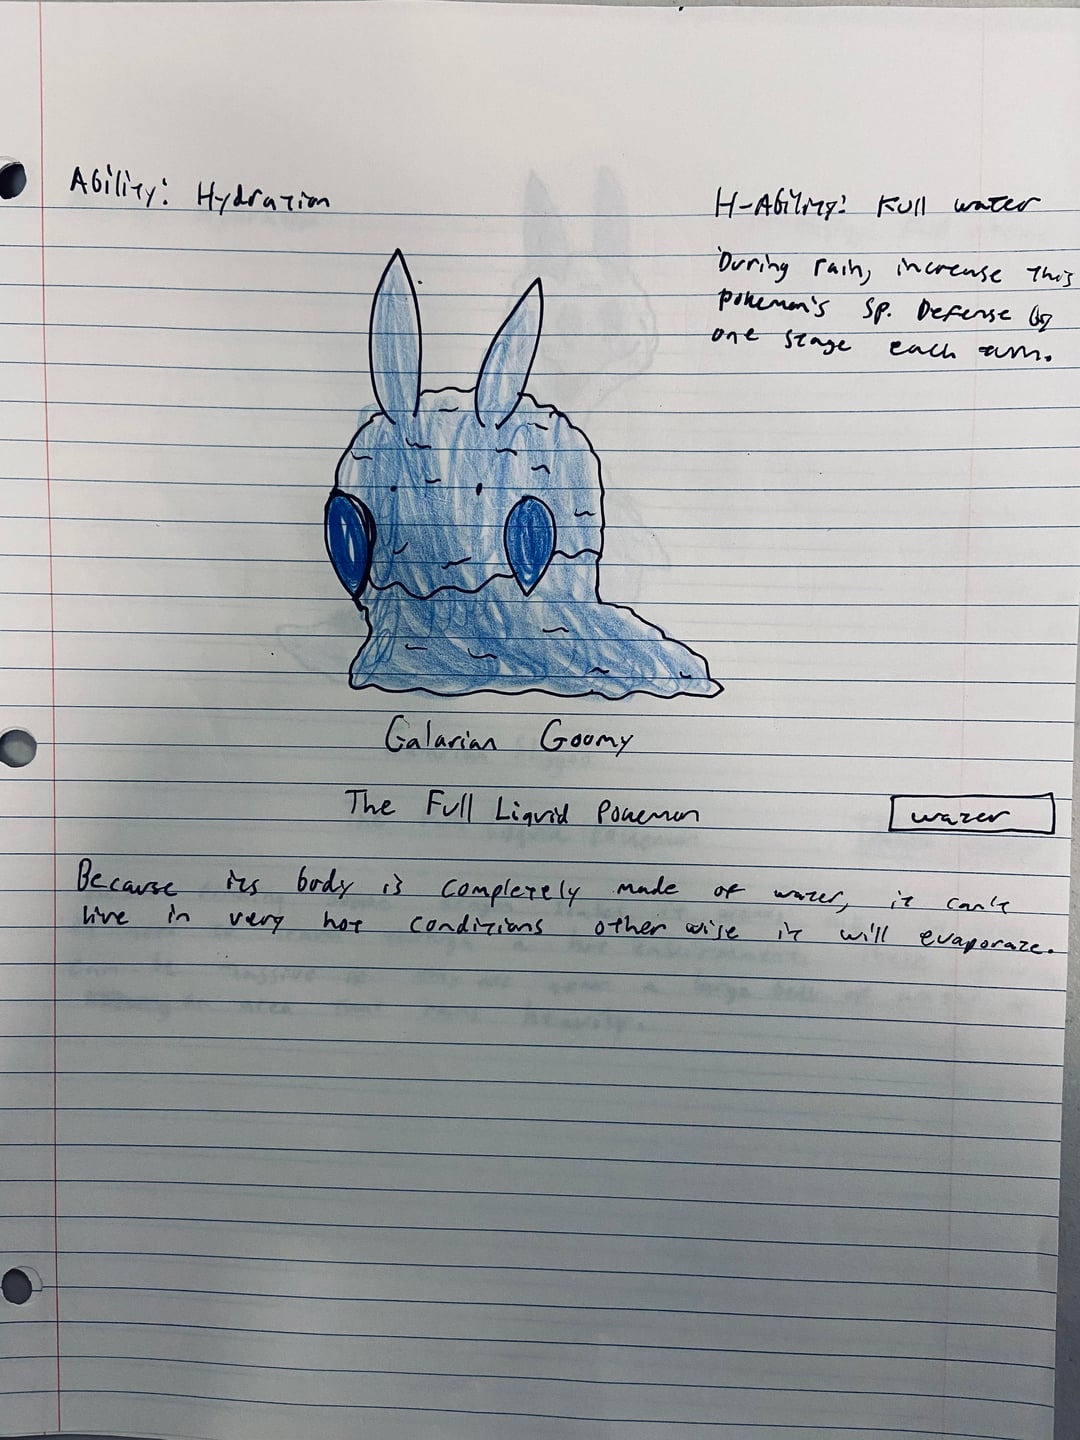 Ability: Hydration
H-Ability: Full water
During rain, increase this
pokemon's Sp. Defense by
one stage each turn.
Galarian Goomy
The Full Liquid Pokemon
water
Because its body is completely made of water, it can't
live in very hot conditions other wise it will evaporate.